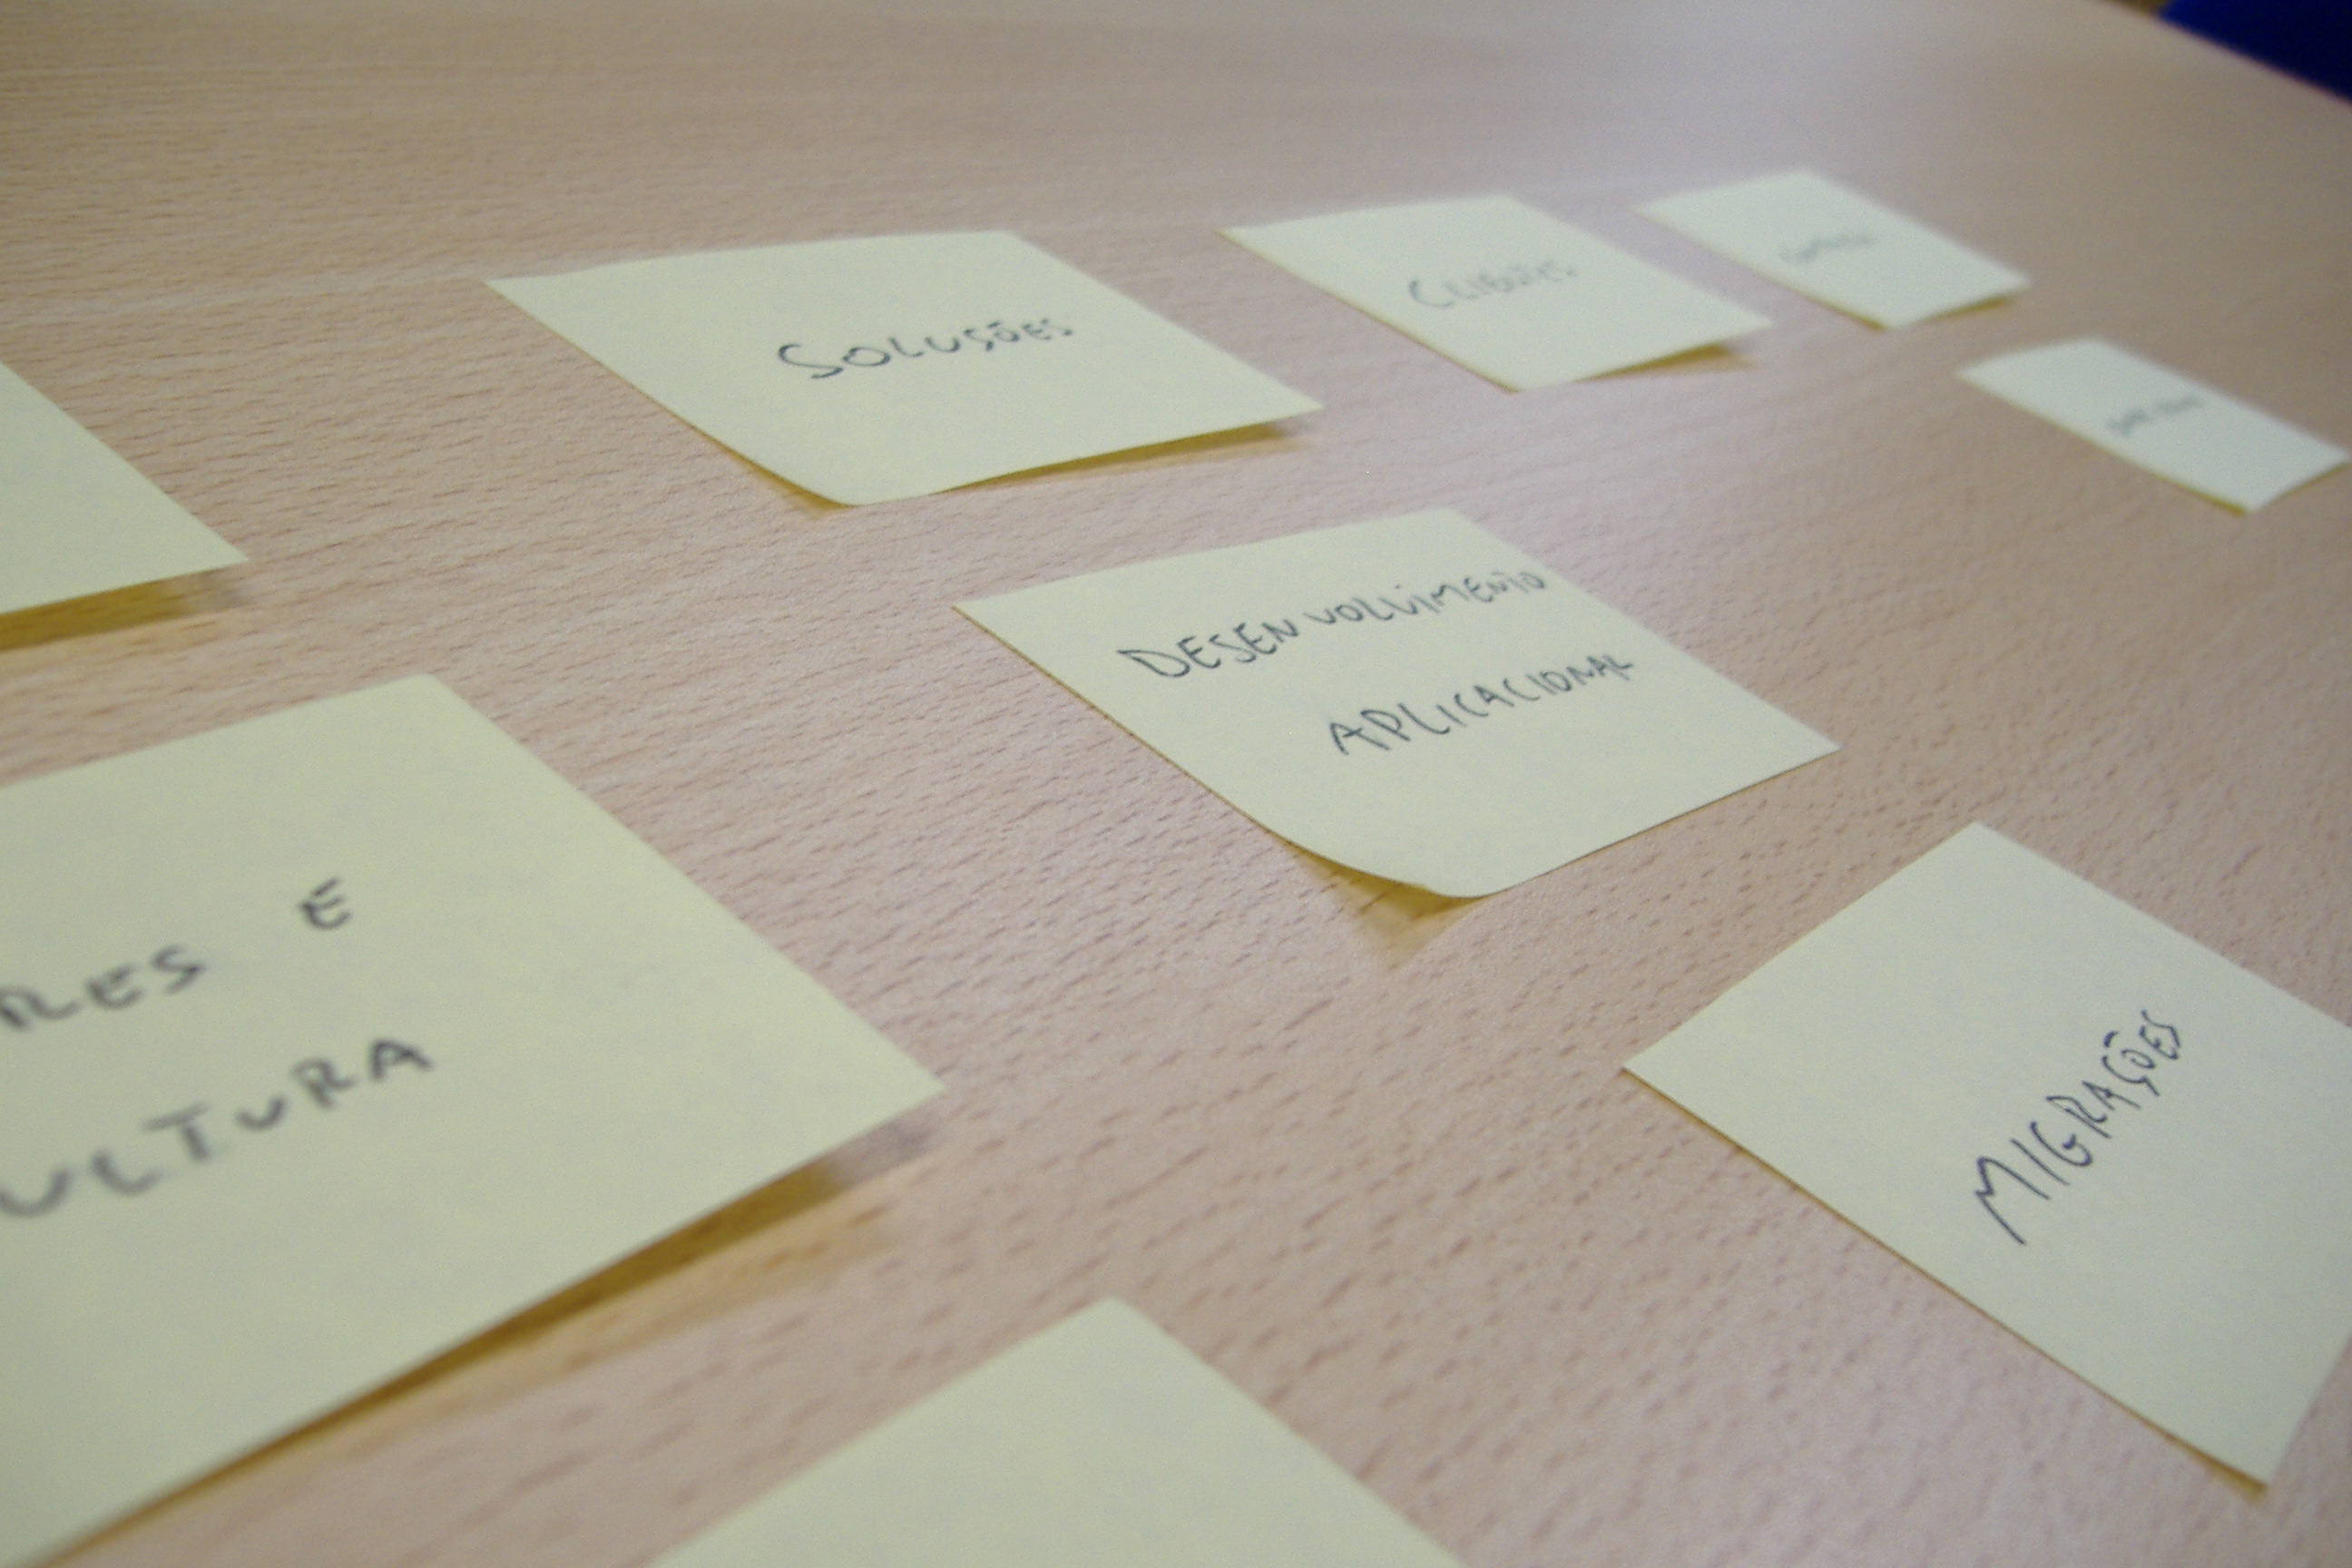 SOLUSÕES
CLIENTES
DESENVOLVIMENTO
APLICACIONAL
RES E
ULTURA
MIGRAÇÕES